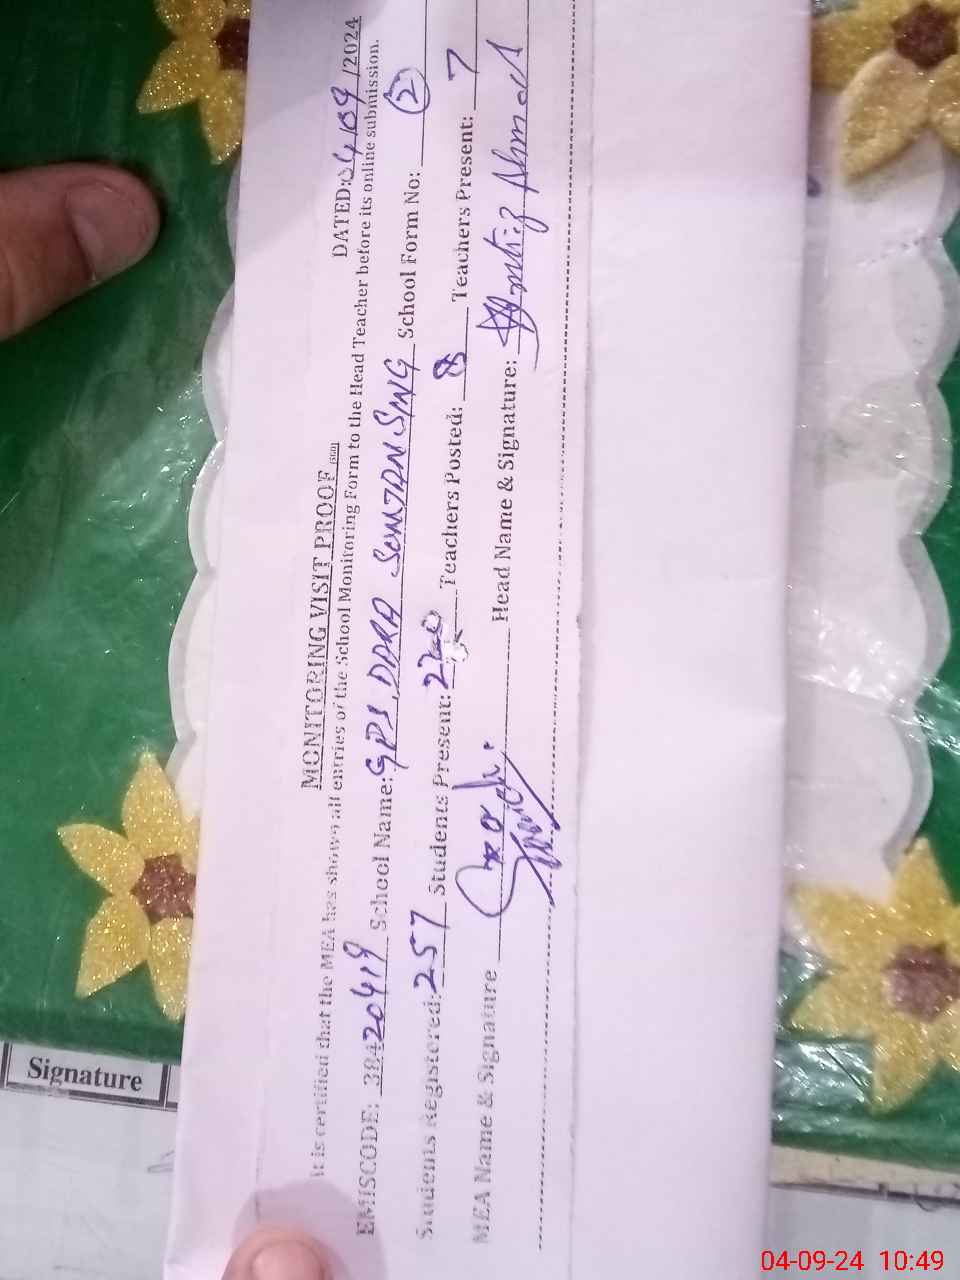 MONITORING VISIT PROOF
DATED: 04/09/2024
It is certified that the MEA has shown all entries of the School Monitoring Form to the Head Teacher before its online submission.
EMISCODE: 38420419 School Name: GPS, DARA School Form No: 2
Students Registered: 257 Students Present: Teachers Posted: 8 Teachers Present: 7
MEA Name & Signature Head Name & Signature: Ahmad
Signature
04-09-24 10:49